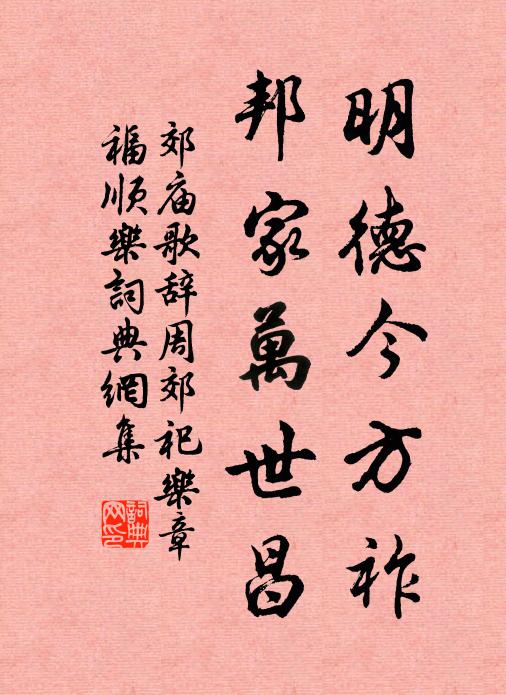 明德今方祚
邦家萬世昌
郊庙歌辞周郊祀樂章
福順樂詞典網集
詞典网印